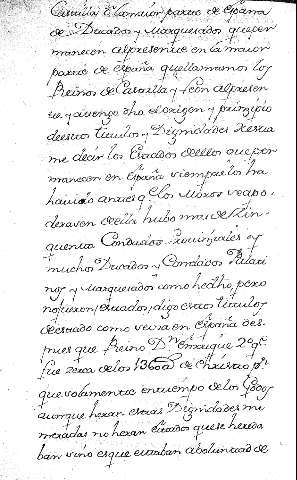 Castilla El maior parte de España
de Ducados y Marquesados que per
manecen al presente en la maior
parte de España que llamamos los
Reinos de Castilla y Leon al presen
te y avengo dho el origen y prinzipio
destos titulos y Dignidades Resta
me decir los Estados dellos que per
manecen en España siempre los ha
havido antes q. los Moros se apo
deraren de ella hubo mas de zin
quenta Condados Provinziales y
muchos Ducados y Condados Palati
nos y Marquesados como he dho, pero
no fueron estados, digo estos titulos
de estado como se usa en España des
pues que Reino Dn. Enrrique 2º q.
fue zerca de los 1360 de Christo p.
que solamente en tiempo de los Godos
aunque heran estas Dignidades mi
meradas no heran Estados que se hereda
ban sino es que estaban a boluntad de